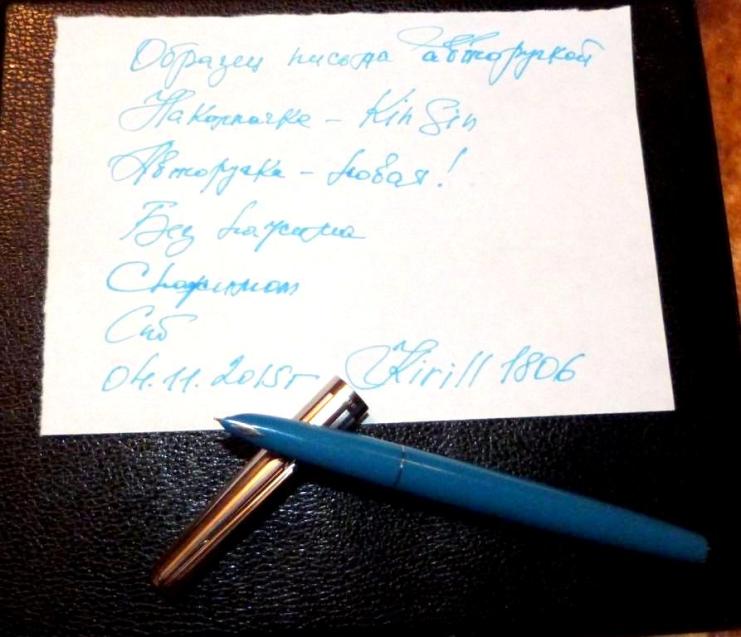 Образец письма авторучкой
На колпачке - Kin Sin
Авторучка - новая!
Без нажима
С нажимом
Спб
04.11.2015г Kirill 1806